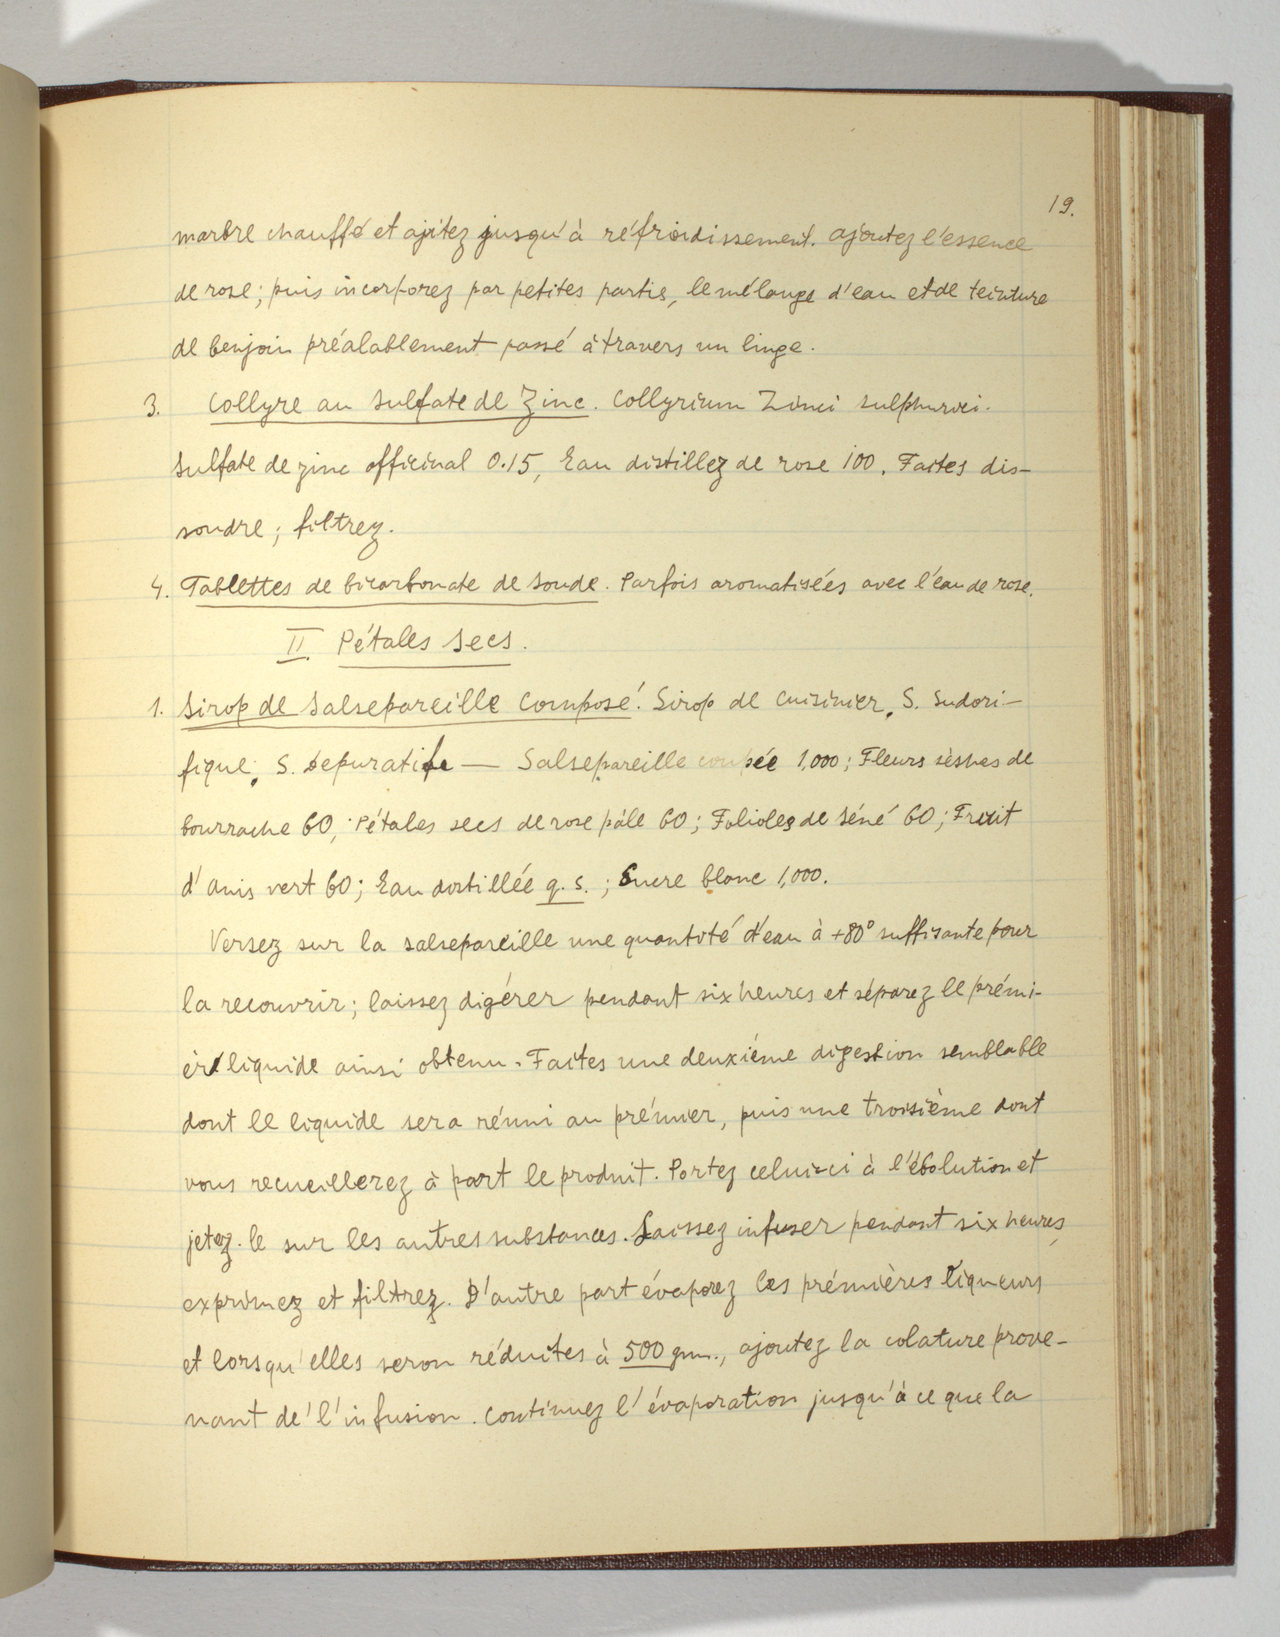 19.
marbre chauffé et agitez jusqu'à réfroidissement. ajoutez l'essence
de rose; puis incorporez par petites partis, le mélange d'eau et de teinture
de benjoin préalablement passé à travers un linge.
3. Collyre au sulfate de Zinc. Collyrium Zinci sulphurici.
Sulfate de zinc officinal 0.15, Eau distillez de rose 100. Faites dis-
soudre; filtrez.
4. Tablettes de bicarbonate de soude. Parfois aromatisées avec l'eau de rose.
II. Pétales secs.
1. Sirop de Salsepareille Composé. Sirop de cuisinier, S. Sudori-
fique, S. Depuratife — Salsepareille coupée 1,000; Fleurs sèches de
bourrache 60, Pétales secs de rose pâle 60; Folioles de séné 60; Fruit
d'anis vert 60; Eau distillée q. s.; Sucre blanc 1,000.
Versez sur la salsepareille une quantité d'eau à +80° suffisante pour
la recouvrir; laissez digérer pendant six heures et séparez le prémi-
èr liquide ainsi obtenu. Faites une deuxième digestion semblable
dont le liquide sera réuni au prémier, puis une troisième dont
vous recueillerez à part le produit. Portez celui-ci à l'ébolution et
jetez-le sur les autres substances. Laissez infuser pendant six heures,
exprimez et filtrez. D'autre part évaporez les prémières liqueurs
et lorsqu'elles seron réduites à 500 gm., ajoutez la colature prove-
nant de l'infusion. Continuez l'évaporation jusqu'à ce que la